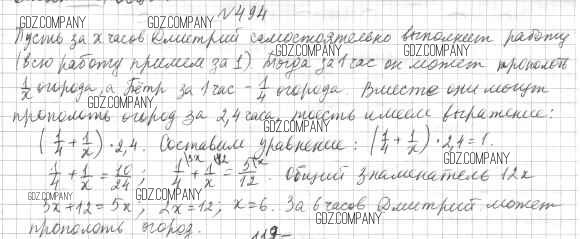 №494
Пусть за x часов Дмитрий самостоятельно выполнит работу
(всю работу примем за 1). Тогда за 1 час он может прополоть
1/x огорода, а Пётр за 1 час - 1/4 огорода. Вместе они могут
прополоть огород за 2,4 часа, то есть имеем выражение:
(1/4 + 1/x) · 2,4. Составим уравнение: (1/4 + 1/x) · 2,4 = 1.
1/4 + 1/x = 10/24; 1/4 \3x + 1/x \12 = 5/12 \x. Общий знаменатель 12x
3x + 12 = 5x; 2x = 12; x = 6. За 6 часов Дмитрий может
прополоть огород.
GDZ.COMPANY
GDZ.COMPANY
GDZ.COMPANY
GDZ.COMPANY
GDZ.COMPANY
GDZ.COMPANY
GDZ.COMPANY
GDZ.COMPANY
GDZ.COMPANY
GDZ.COMPANY
GDZ.COMPANY
GDZ.COMPANY
GDZ.COMPANY